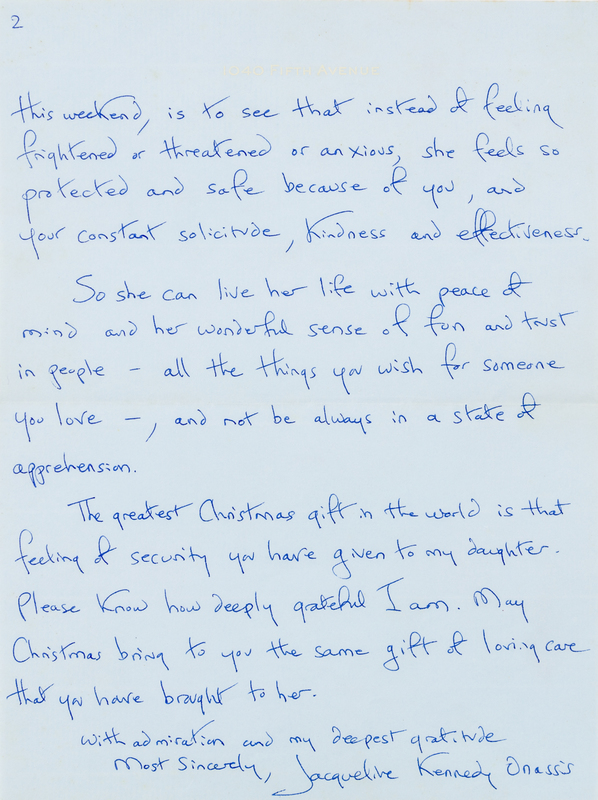 2
this weekend, is to see that instead of feeling
frightened or threatened or anxious, she feels so
protected and safe because of you, and
your constant solicitude, kindness and effectiveness.
So she can live her life with peace of
mind and her wonderful sense of fun and trust
in people - all the things you wish for someone
you love -, and not be always in a state of
apprehension.
The greatest Christmas gift in the world is that
feeling of security you have given to my daughter.
Please know how deeply grateful I am. May
Christmas bring to you the same gift of loving care
that you have brought to her.
With admiration and my deepest gratitude
Most Sincerely, Jacqueline Kennedy Onassis